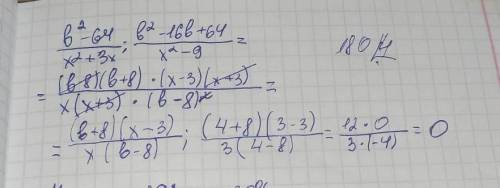 (в² - 64)/(x² + 3x) ; (в² - 16в + 64)/(x² - 9) =
180
= ((в-8)(в+8) · (x-3)(x+3))/(x(x+3) · (в-8)²) =
= ((в+8)(x-3))/(x(в-8)) ; ((4+8)(3-3))/(3(4-8)) = (12·0)/(3·(-4)) = 0